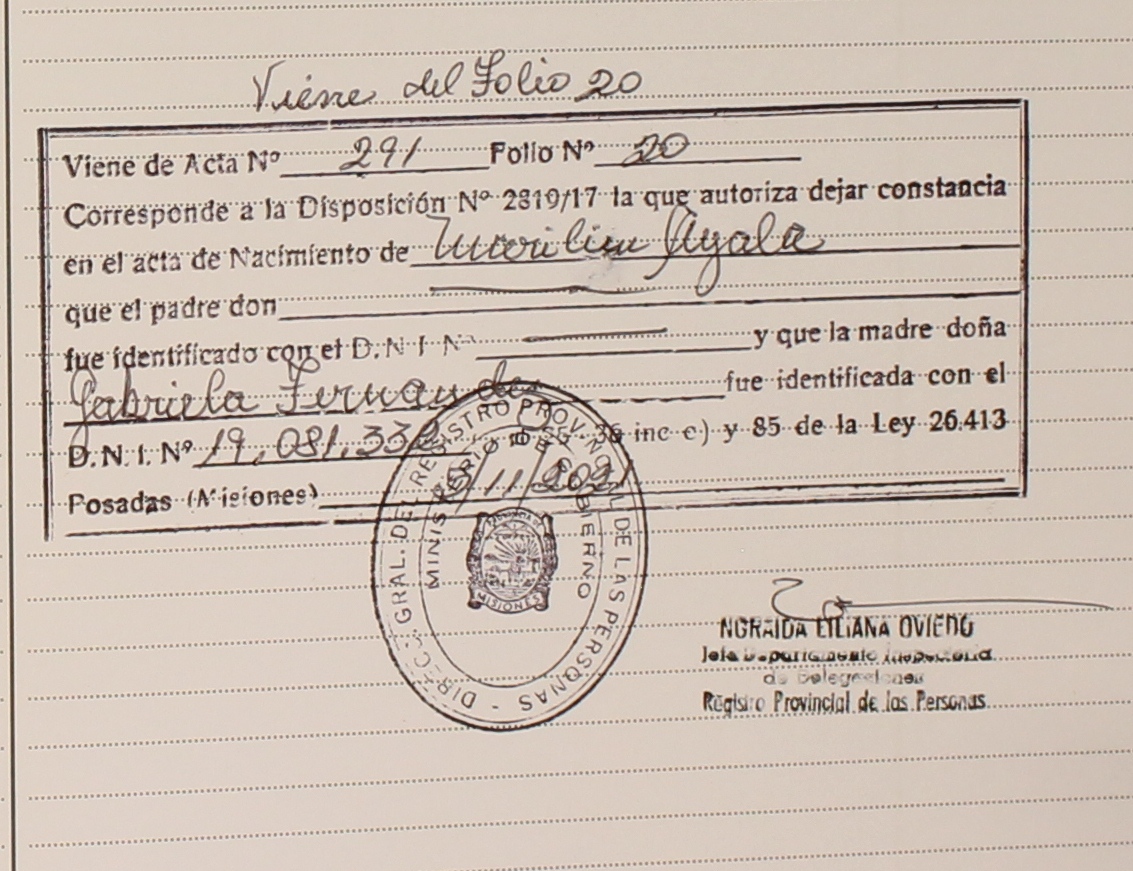 Viene del Folio 20
Viene de Acta Nº 291 Folio Nº 20
Corresponde a la Disposición Nº 2819/17 la que autoriza dejar constancia
en el acta de Nacimiento de Ayala
que el padre don
fue identificado con el D.N.I. Nº y que la madre doña
Gabriela Fernandez fue identificada con el
D.N.I. Nº 19.081.332 36 inc c) y 85 de la Ley 26.413
Posadas (Misiones) 5/11/2021
DIRECC. GRAL. DEL REGISTRO PROVINCIAL DE LAS PERSONAS -
MINISTERIO DE GOBIERNO
PROVINCIA DE
MISIONES
LILIANA OVIEDO
Jefa Departamento Inspectoria
de Delegaciones
Registro Provincial de las Personas